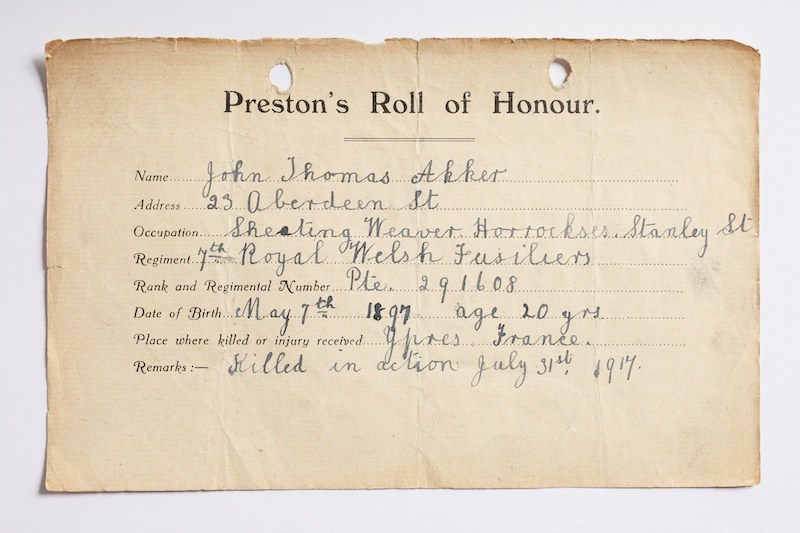 Preston's Roll of Honour.
Name John Thomas Akker
Address 23 Aberdeen St
Occupation Sheeting Weaver Horrockses. Stanley St
Regiment 7th Royal Welsh Fusiliers
Rank and Regimental Number Pte. 291608
Date of Birth May 7th 1897 age 20 yrs
Place where killed or injury received Ypres France.
Remarks :— Killed in action July 31st 1917.